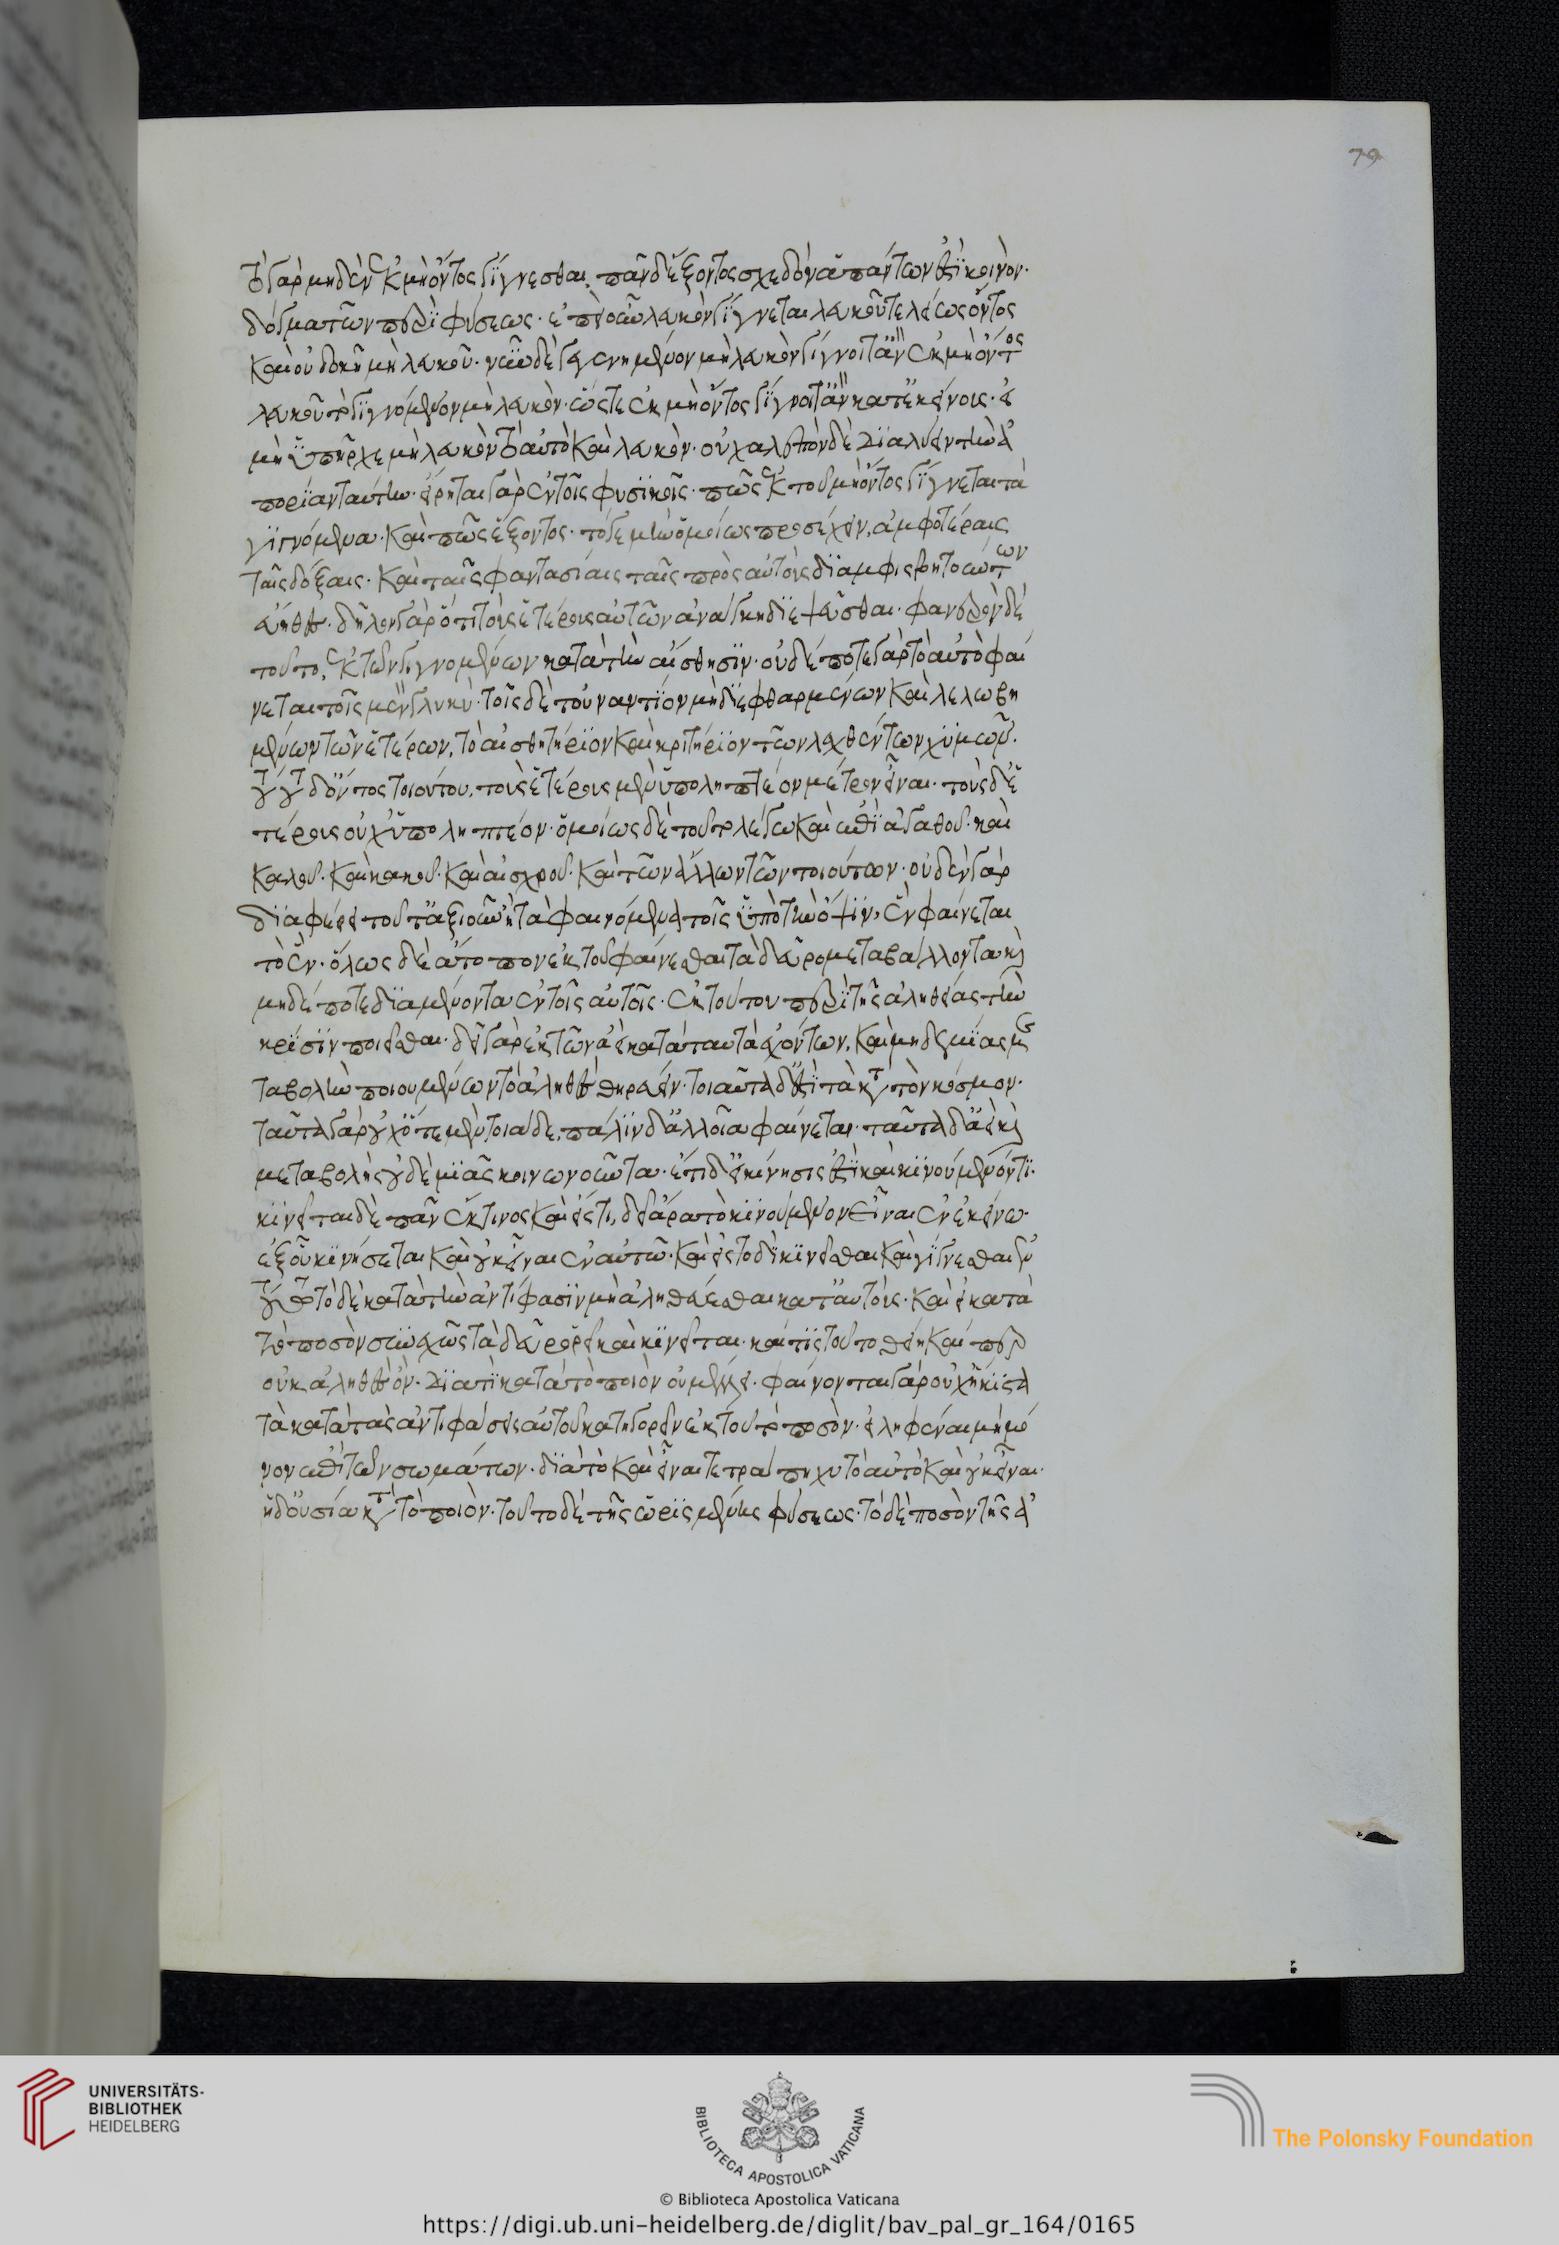 τὸ γὰρ μηδὲν ἐκ μὴ ὄντος γίγνεσθαι. πᾶν δ' ἐξ ὄντος σχεδὸν ἁπάντων ἐστὶ κοινὸν·
δόγμα τῶν περὶ φύσεως· ἐπεὶ οὖν λευκὸν γίγνεται λευκοῦ τελέως ὄντος
καὶ οὐδαμῆ μὴ λευκοῦ· νῦν δὲ γεγενημένον μὴ λευκὸν γίγνοιτ' ἂν ἐκ μὴ ὄντος
λευκοῦ τὸ γιγνόμενον μὴ λευκὸν· ὥστε ἐκ μὴ ὄντος γίγνοιτ' ἂν κατ' ἐκείνους· εἰ
μὴ ὑπῆρχε μὴ λευκὸν τὸ αὐτὸ καὶ λευκὸν· οὐ χαλεπὸν δὲ διαλύειν τὴν ἀ
πορίαν ταύτην· εἴρηται γὰρ ἐν τοῖς φυσικοῖς· πῶς ἐκ τοῦ μὴ ὄντος γίγνεται τὰ
γιγνόμενα· καὶ πῶς ἐξ ὄντος· τό γε μὴν ὁμοίως προσέχειν, ἀμφοτέραις
ταῖς δόξαις· καὶ ταῖς φαντασίαις ταῖς πρὸς αὐτοὺς διαμφισβητούντων
εὔηθες· δῆλον γὰρ ὅτι τοὺς ἑτέρους αὐτῶν ἀνάγκη διεψεῦσθαι· φανερὸν δὲ
τοῦτο, ἐκ τῶν γιγνομένων κατὰ τὴν αἴσθησιν· οὐδέποτε γὰρ τὸ αὐτὸ φαί
νεται τοῖς μὲν γλυκὺ· τοῖς δὲ τοὐναντίον μὴ διεφθαρμένων καὶ λελωβη
μένων τῶν ἑτέρων, τὸ αἰσθητήριον καὶ κριτήριον τῶν λεχθέντων χυμῶν·
τούτου δ' ὄντος τοιούτου, τοὺς ἑτέρους μὲν ὑποληπτέον μέτρον εἶναι· τοὺς δ' ἑ
τέρους οὐχ ὑποληπτέον· ὁμοίως δὲ τοῦτο λέγω καὶ ἐπὶ ἀγαθοῦ· καὶ
καλοῦ· καὶ κακοῦ· καὶ αἰσχροῦ· καὶ τῶν ἄλλων τῶν τοιούτων· οὐδὲν γὰρ
διαφέρει τοῦτ' ἀξιοῦν ἢ τὰ φαινόμενα τοῖς ὑπὸ τὴν ὄψιν,
τὸ ἓν· ὅλως δὲ ἄτοπον ἐκ τοῦ φαίνεσθαι τὰ δεῦρο μεταβάλλοντα καὶ
μηδέποτε διαμένοντα ἐν τοῖς αὐτοῖς· ἐκ τούτου περὶ τῆς ἀληθείας τὴν
κρίσιν ποιεῖσθαι· δεῖ γὰρ ἐκ τῶν ἀεὶ κατὰ ταυτὰ ἐχόντων, καὶ μηδεμίας με
ταβολὴν ποιουμένων τὸ ἀληθὲς θηρεύειν· τοιαῦτα δ' ἐστὶ τὰ κατὰ τὸν κόσμον·
ταῦτα γὰρ οὐχ ὁτὲ μὲν τοιάδε, πάλιν δ' ἀλλοῖα φαίνεται· ταῦτα δ' ἀεὶ καὶ
μεταβολῆς οὐδεμιᾶς κοινωνοῦντα· ἔτι δ' εἰ κίνησις ἐστὶ καὶ κινούμενόν τι·
κινεῖται δὲ πᾶν ἔκ τινος καὶ εἴς τι, δεῖ ἄρα τὸ κινούμενον εἶναι ἐν ἐκείνω·
ἐξ οὗ κινήσεται καὶ οὐκ εἶναι ἐν αὐτῶ· καὶ εἰς τοδὶ κινεῖσθαι καὶ γίγνεσθαι ἐν
τούτω τὸ δὲ κατὰ τὴν ἀντίφασιν μὴ ἀληθεύεσθαι κατ' αὐτοὺς· καὶ εἰ κατὰ
τὸ ποσὸν συνεχῶς τὰ δεῦρο ῥεῖ καὶ κινεῖται· καί τις τοῦτο θείη καί περ
οὐκ ἀληθὲς ὂν· διατὶ κατὰ τὸ ποιὸν οὐ μενεῖ· φαίνονται γὰρ οὐχ ἥκιστα
τὰ κατὰ τὰς ἀντιφάσεις αὐτοῦ κατηγορεῖν ἐκ τοῦ τὸ ποσὸν· εἰληφέναι μὴ μέ
νον ἐπὶ τῶν σωμάτων· διὰ τὸ καὶ εἶναι τετράπηχυ τὸ αὐτὸ καὶ οὐκ εἶναι·
ἡ δ' οὐσία κατὰ τὸ ποιὸν· τοῦτο δὲ τῆς ὡρισμένης φύσεως· τὸ δὲ ποσὸν τῆς ἀ
79
UNIVERSITÄTS-
BIBLIOTHEK
HEIDELBERG
BIBLIOTECA APOSTOLICA VATICANA
The Polonsky Foundation
© Biblioteca Apostolica Vaticana
https://digi.ub.uni-heidelberg.de/diglit/bav_pal_gr_164/0165